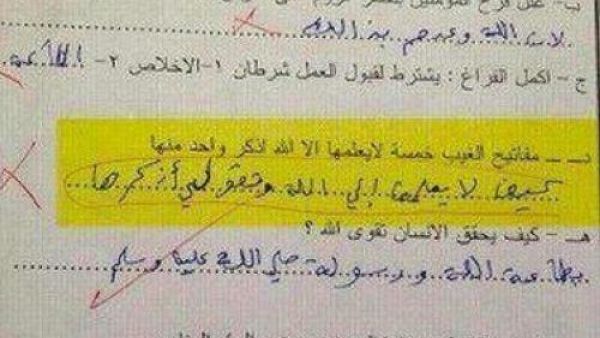 لان الله وعدهم بذالك
ج - اكمل الفراغ : يشترط لقبول العمل شرطان ١-الاخلاص ٢-
د - مفاتيح الغيب خمسة لايعلمها الا الله اذكر واحد منها
كيف لا يعلمها إلى الله وتقولي أذكرها
هـ - كيف يحقق الانسان تقوى الله ؟
بطاعة الله ورسولة صلي الله علية وسلم